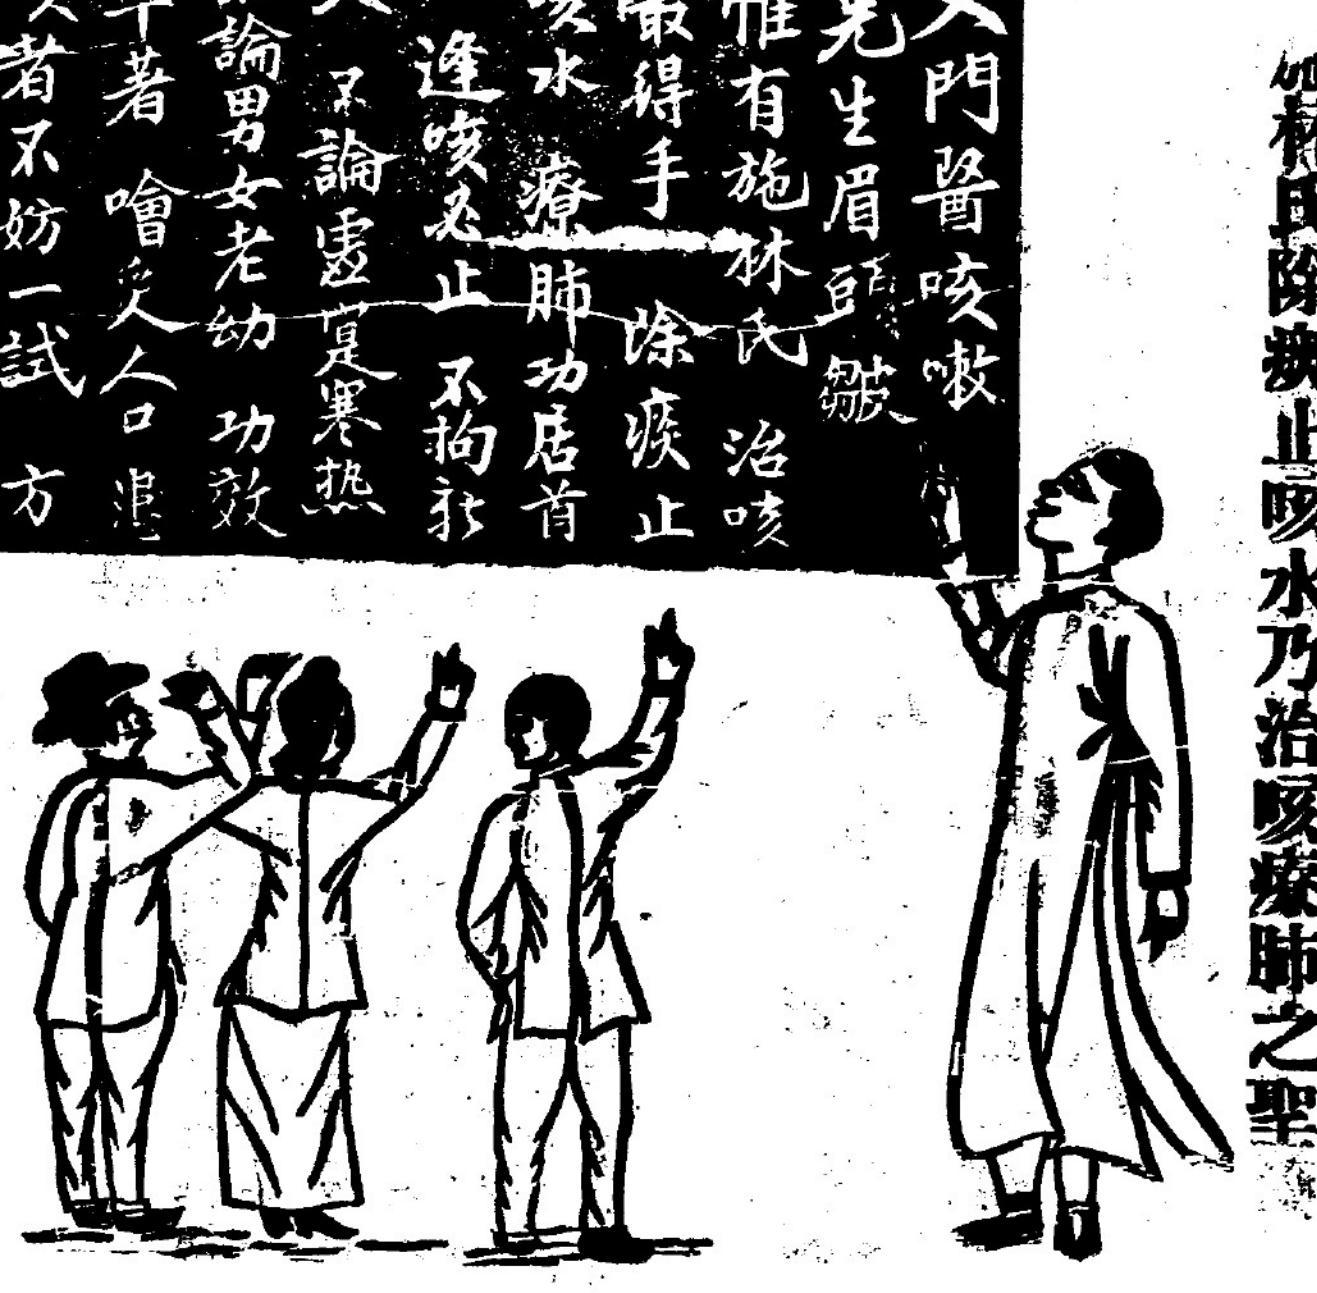 施林氏除痰止咳水乃治咳療肺之聖
入門醫咳嗽
先生眉頭皺
惟有施林氏 治咳
最得手 除痰止
咳水 療肺功居首
逢咳必止 不拘新
久 不論虛寔寒热
論男女老幼 功效
著 噲受人人口
者不妨一試 方